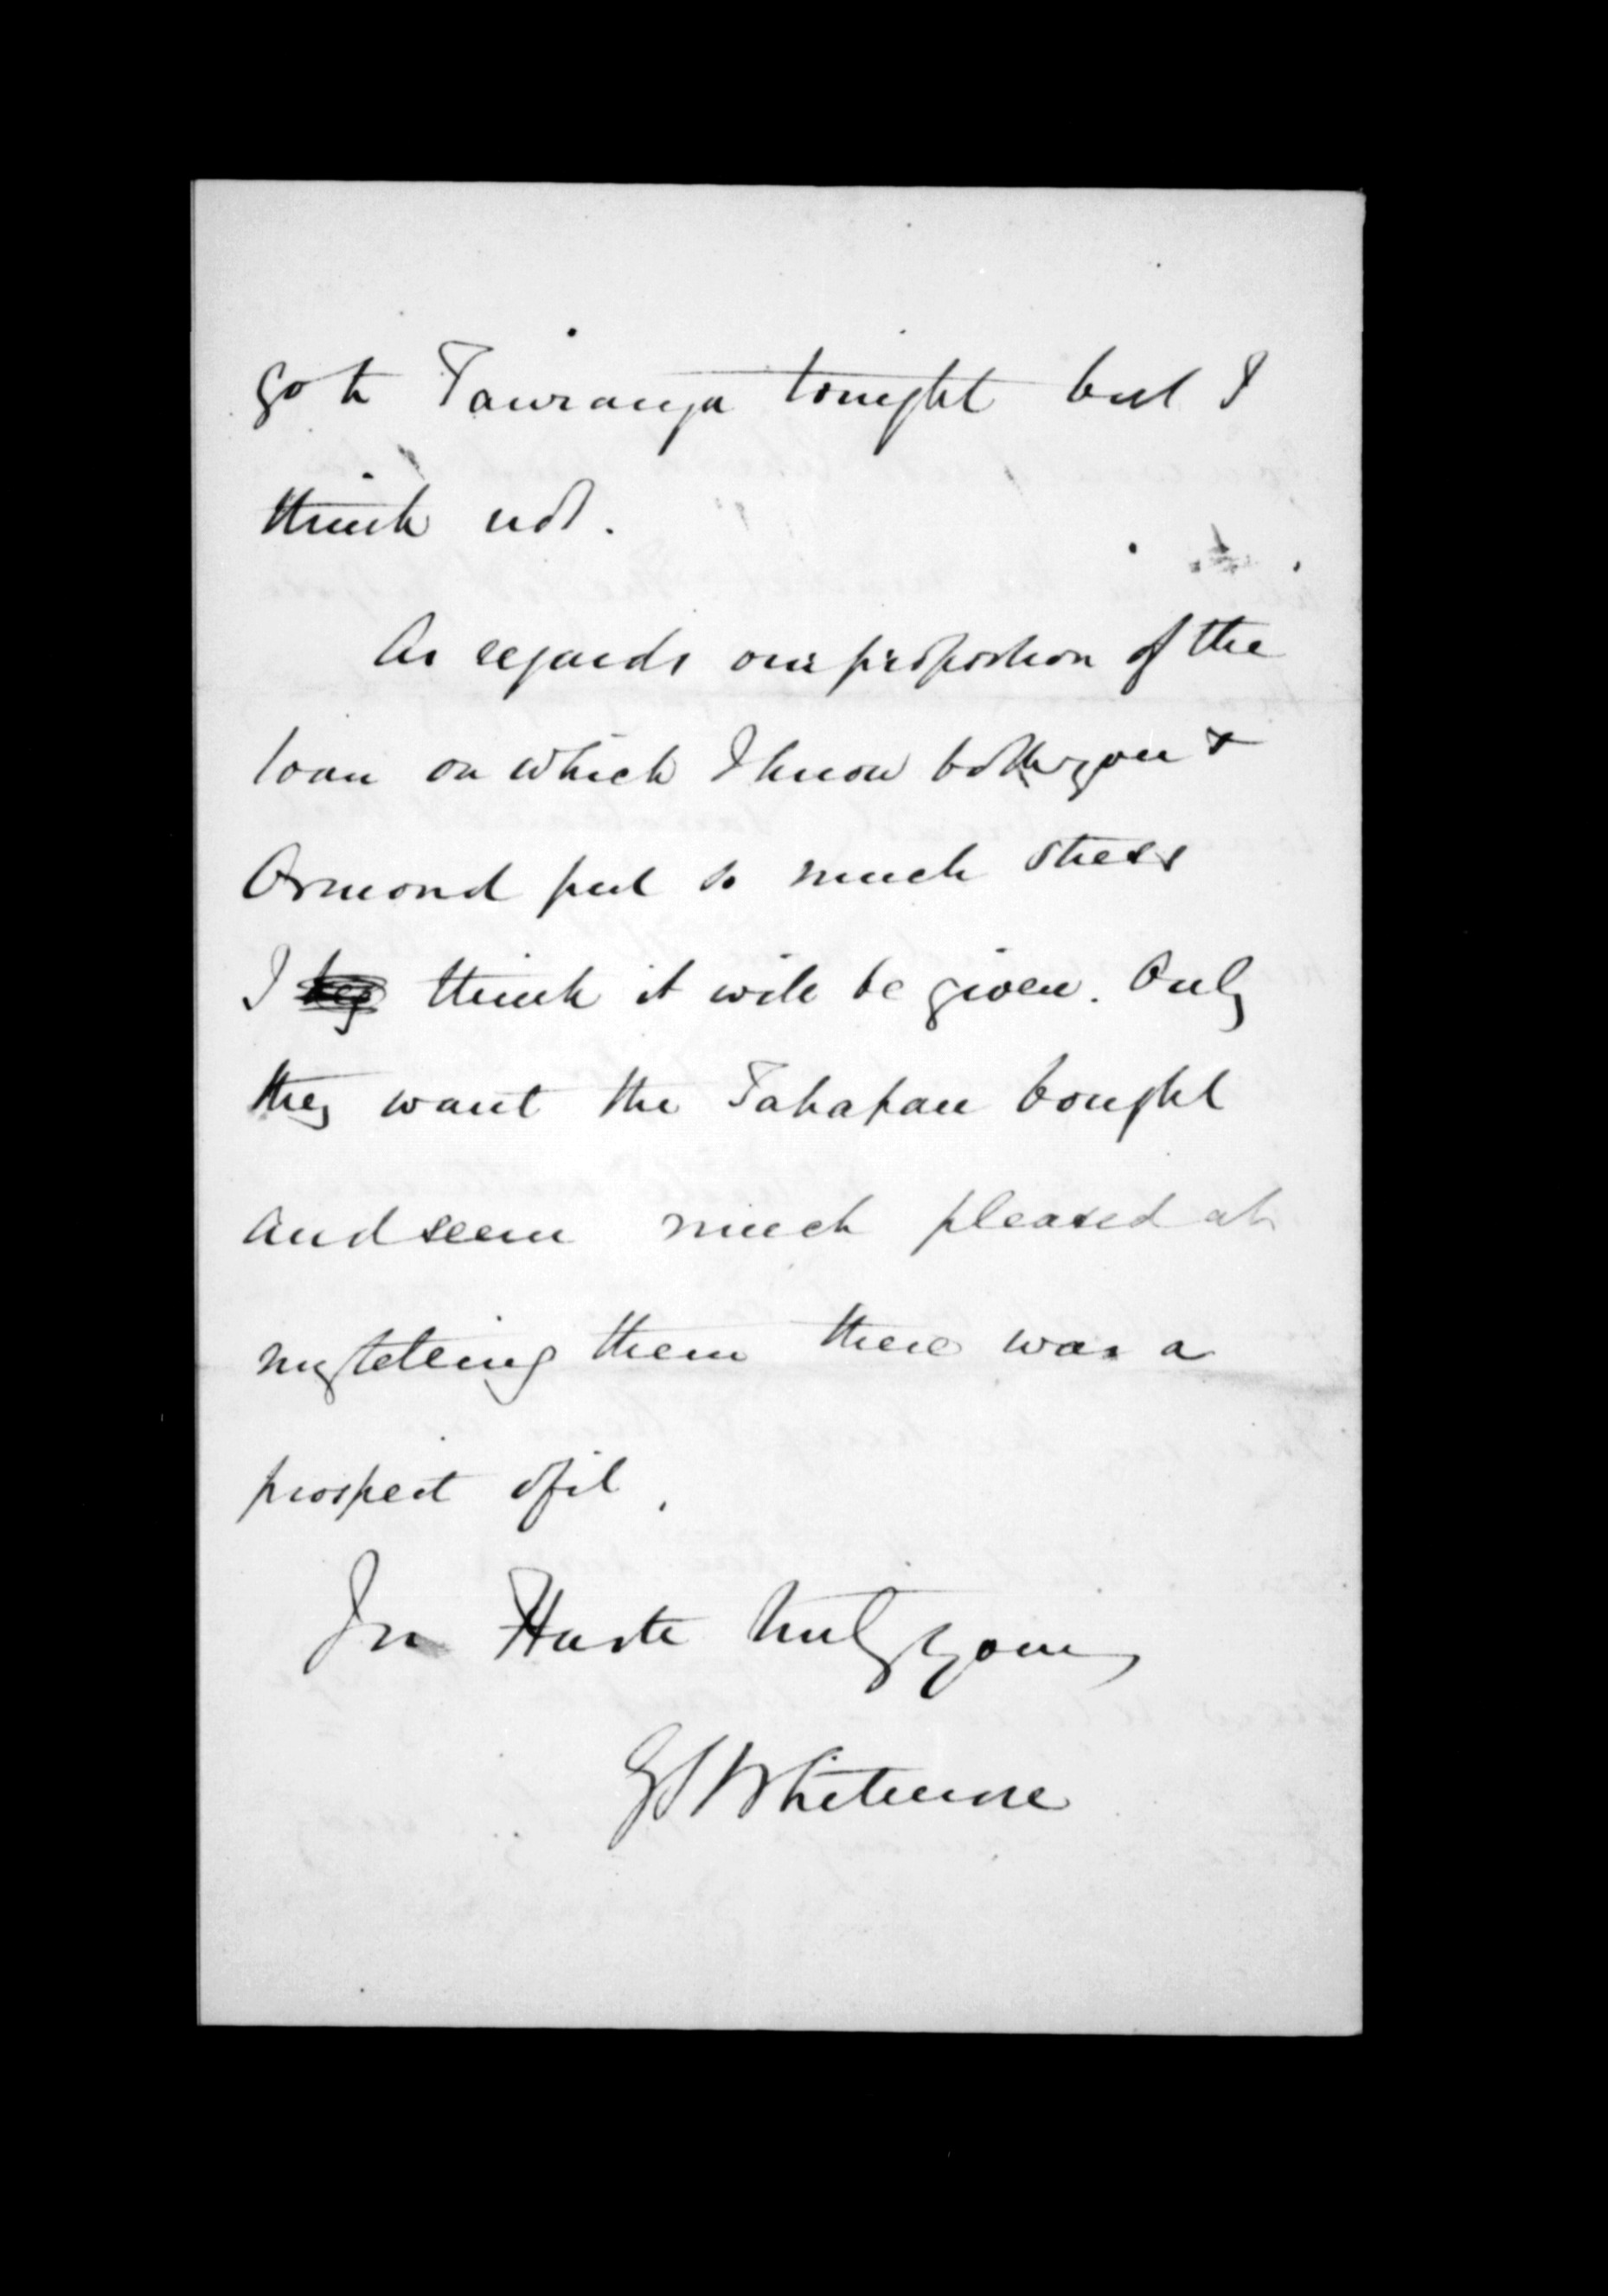 go to Tauranga tonight but I
think not.
As regards our proportion of the
loan on which I know both you &
Ormond put so much stress
I think it will be given. Only
they want the Tahapau bought
and seem much pleased at
my telling them there was a
prospect of it.
In Haste truly yours
G S Whitmore